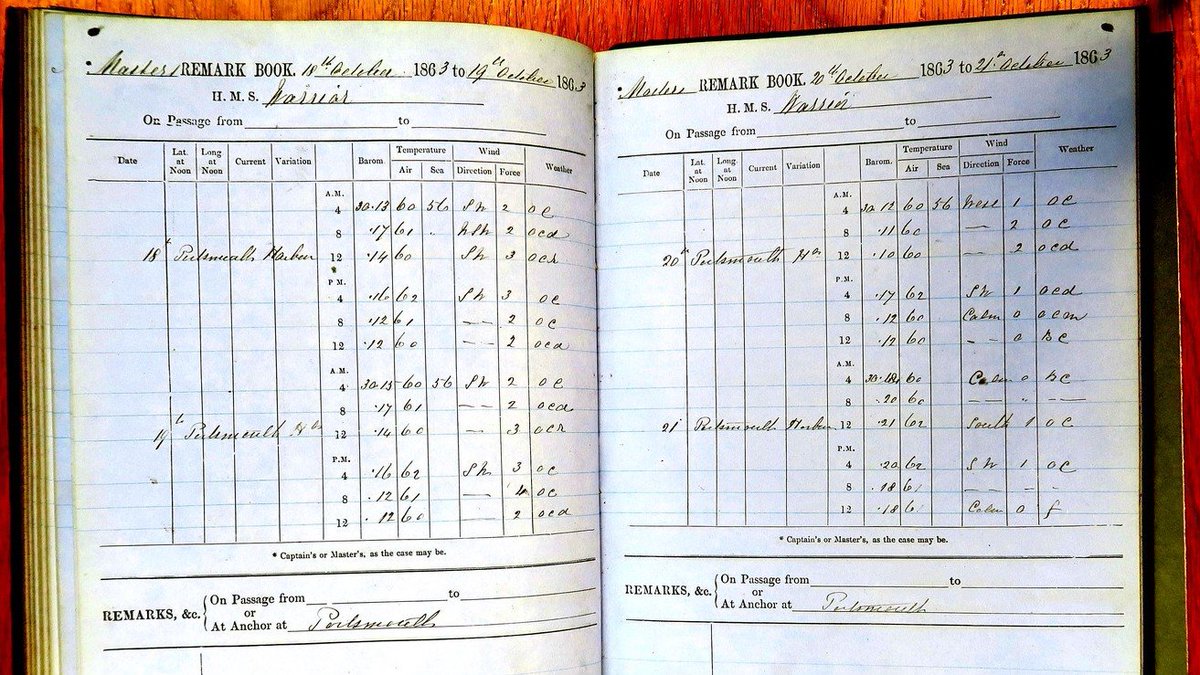 Masters REMARK BOOK. 18th October 1863 to 19th October 1863
H. M. S. Warrior
On Passage from to
Date Lat. at Noon Long at Noon Current Variation Barom. Temperature Air Sea Wind Direction Force Weather
A.M.
4 30.13 60 56 SW 2 oc
8 .17 61 . WSW 2 ocd
18th Portsmouth Harbour 12 .14 60 SW 3 ocr
P M.
4 .16 62 SW 3 oc
8 .12 61 — — 2 oc
12 .12 60 — — 2 ocd
A.M.
4 30.15 60 56 SW 2 oc
8 .17 61 — — 2 ocd
19th Portsmouth Hr 12 .14 60 — 3 ocr
P.M.
4 .16 62 SW 3 oc
8 .12 61 — — 4 oc
12 .12 60 — 2 ocd
* Captain's or Master's, as the case may be.
REMARKS, &c. On Passage from to
or
At Anchor at Portsmouth
Masters REMARK BOOK. 20th October 1863 to 21st October 1863
H. M. S. Warrior
On Passage from to
Date Lat. at Noon Long at Noon Current Variation Barom. Temperature Air Sea Wind Direction Force Weather
A.M.
4 30.12 60 56 West 1 oc
8 .11 60 — 2 oc
20th Portsmouth Hr 12 .10 60 — 2 ocd
P.M.
4 .17 62 SW 1 ocd
8 .12 60 Calm 0 ocm
12 .12 60 — — 0 bc
A.M.
4 30.18 60 Calm 0 bc
8 .20 60 — — — " — —
21 Portsmouth Harbour 12 .21 62 South 1 oc
P.M.
4 .20 62 SW 1 oc
8 .18 61 — — — — -
12 .18 6 Calm 0 f
* Captain's or Master's, as the case may be.
REMARKS, &c. On Passage from to
or
At Anchor at Portsmouth